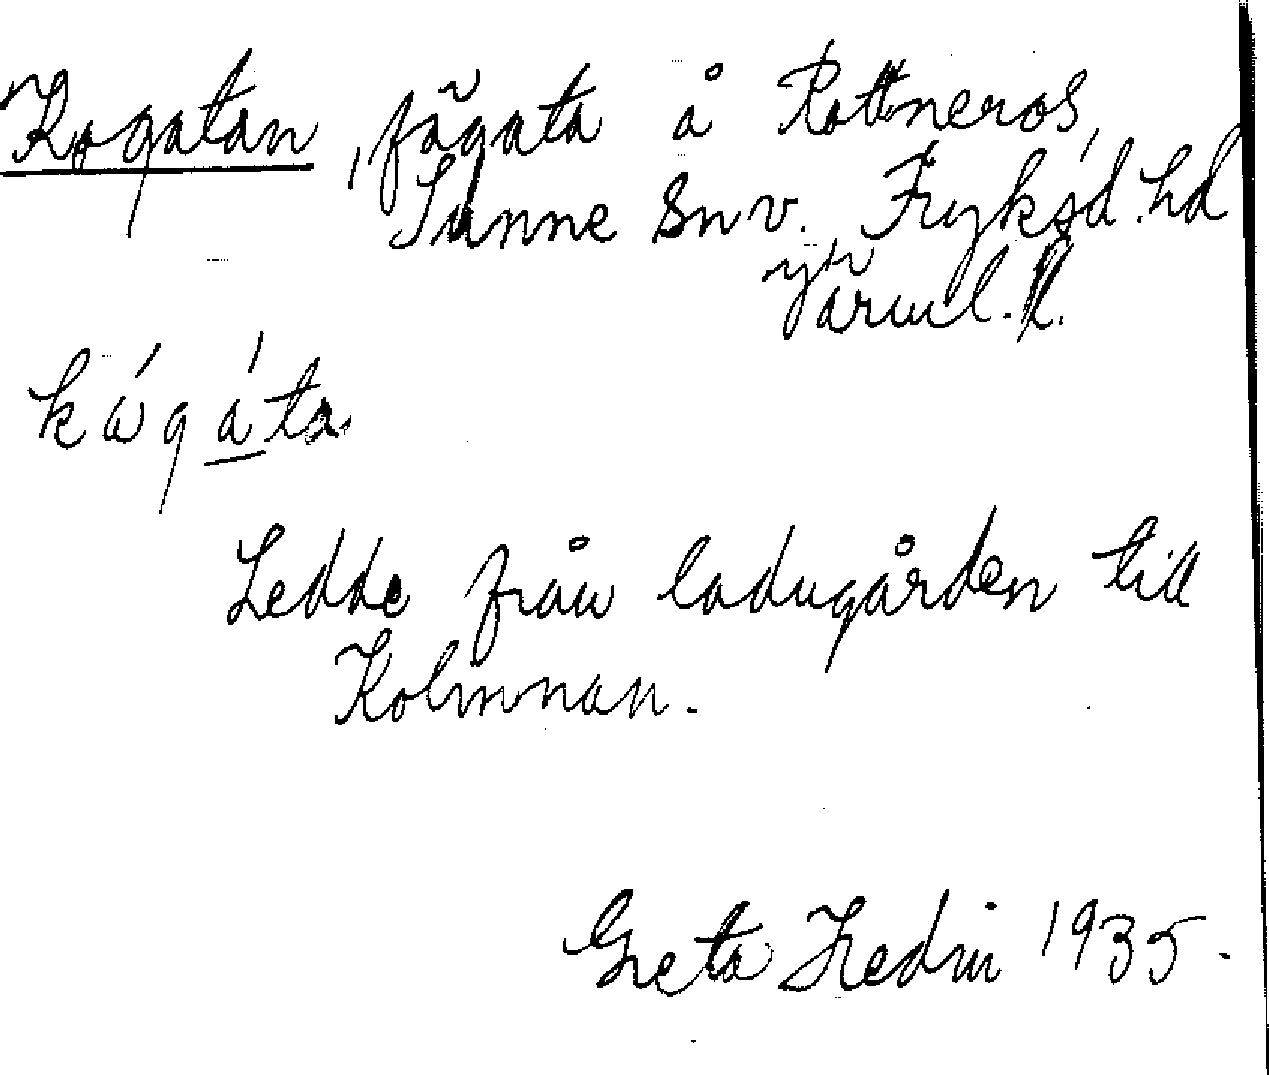 Kogatan, fägata å Rottneros,
Sunne sn v. Fryksd. hd
Värml. l.
kógáta
Ledde från ladugården till
Kolmnan.
Greta Hedin 1935.